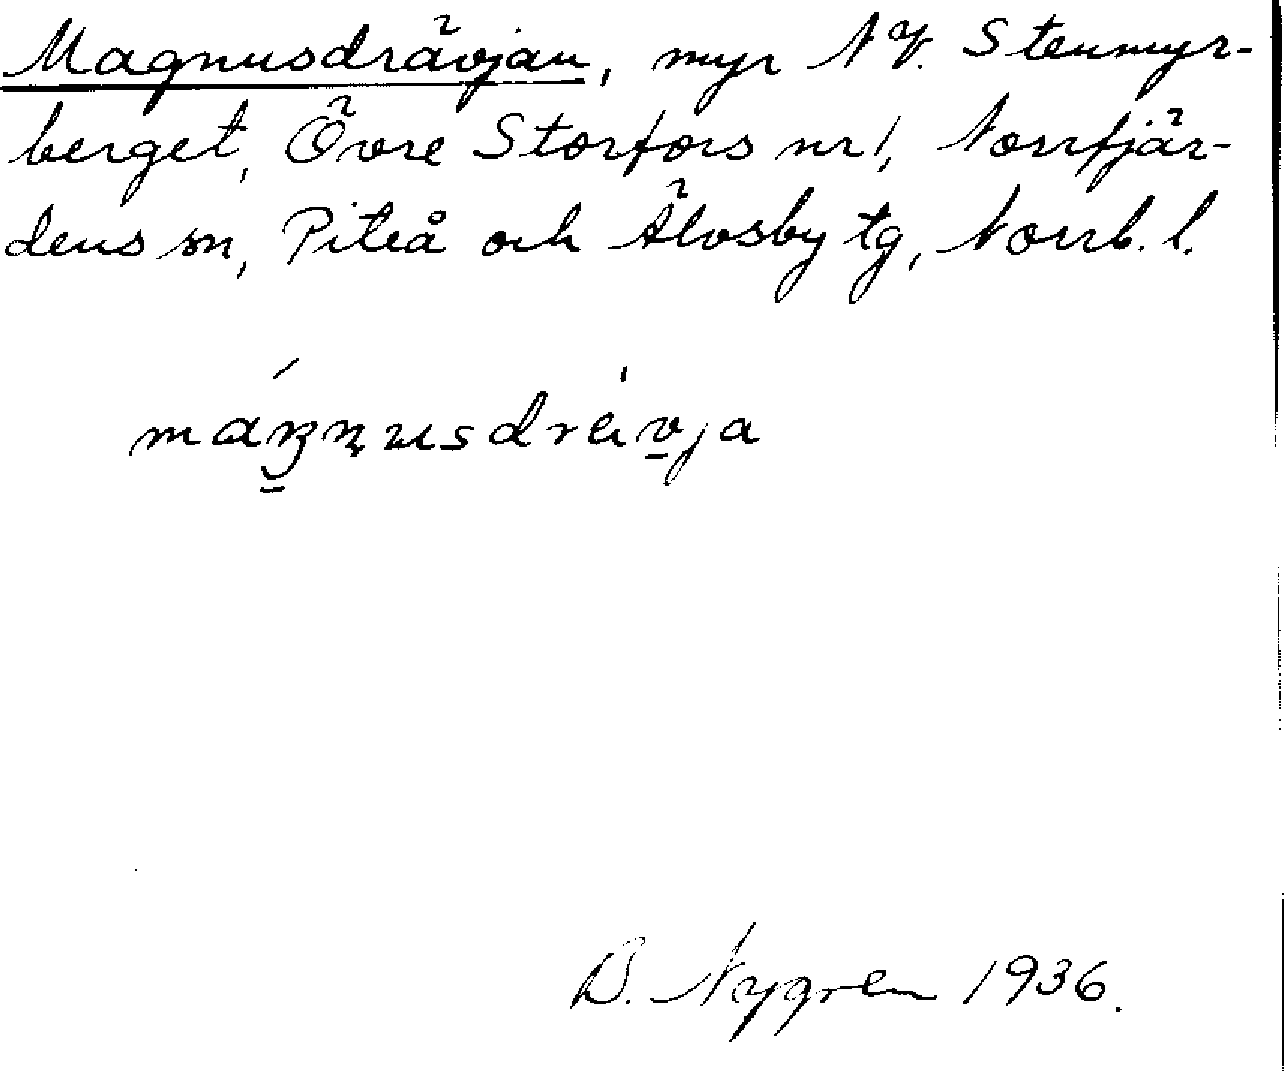 Magnusdrävjan, myr NV. Stenmyr-
berget, Övre Storfors nr 1, Norrfjär-
dens sn, Piteå och Älvsby tg, Norrb. l.
máŋnusdrèivja
B. Nygren 1936.